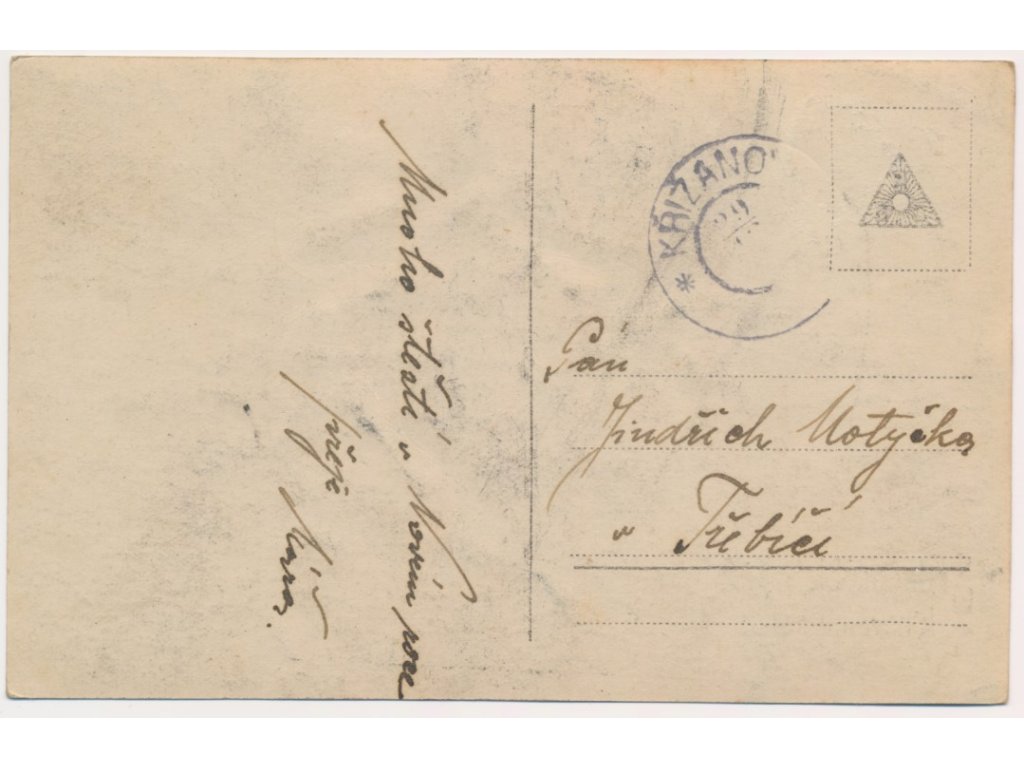 Mnoho štestí v Novém roce
přeje
* KŘIŽANO
Pán
Jindřich Motyčka
v Třebíči